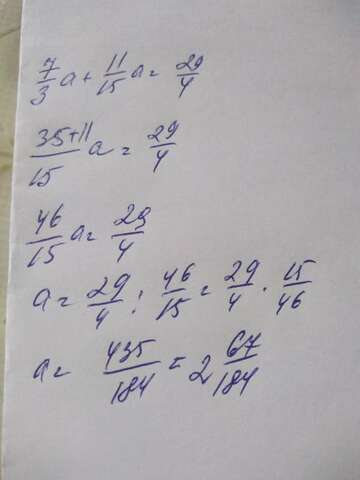 7/3 a + 11/15 a = 29/4
35+11/15 a = 29/4
46/15 a = 29/4
a = 29/4 : 46/15 = 29/4 · 15/46
a = 435/184 = 2 67/184